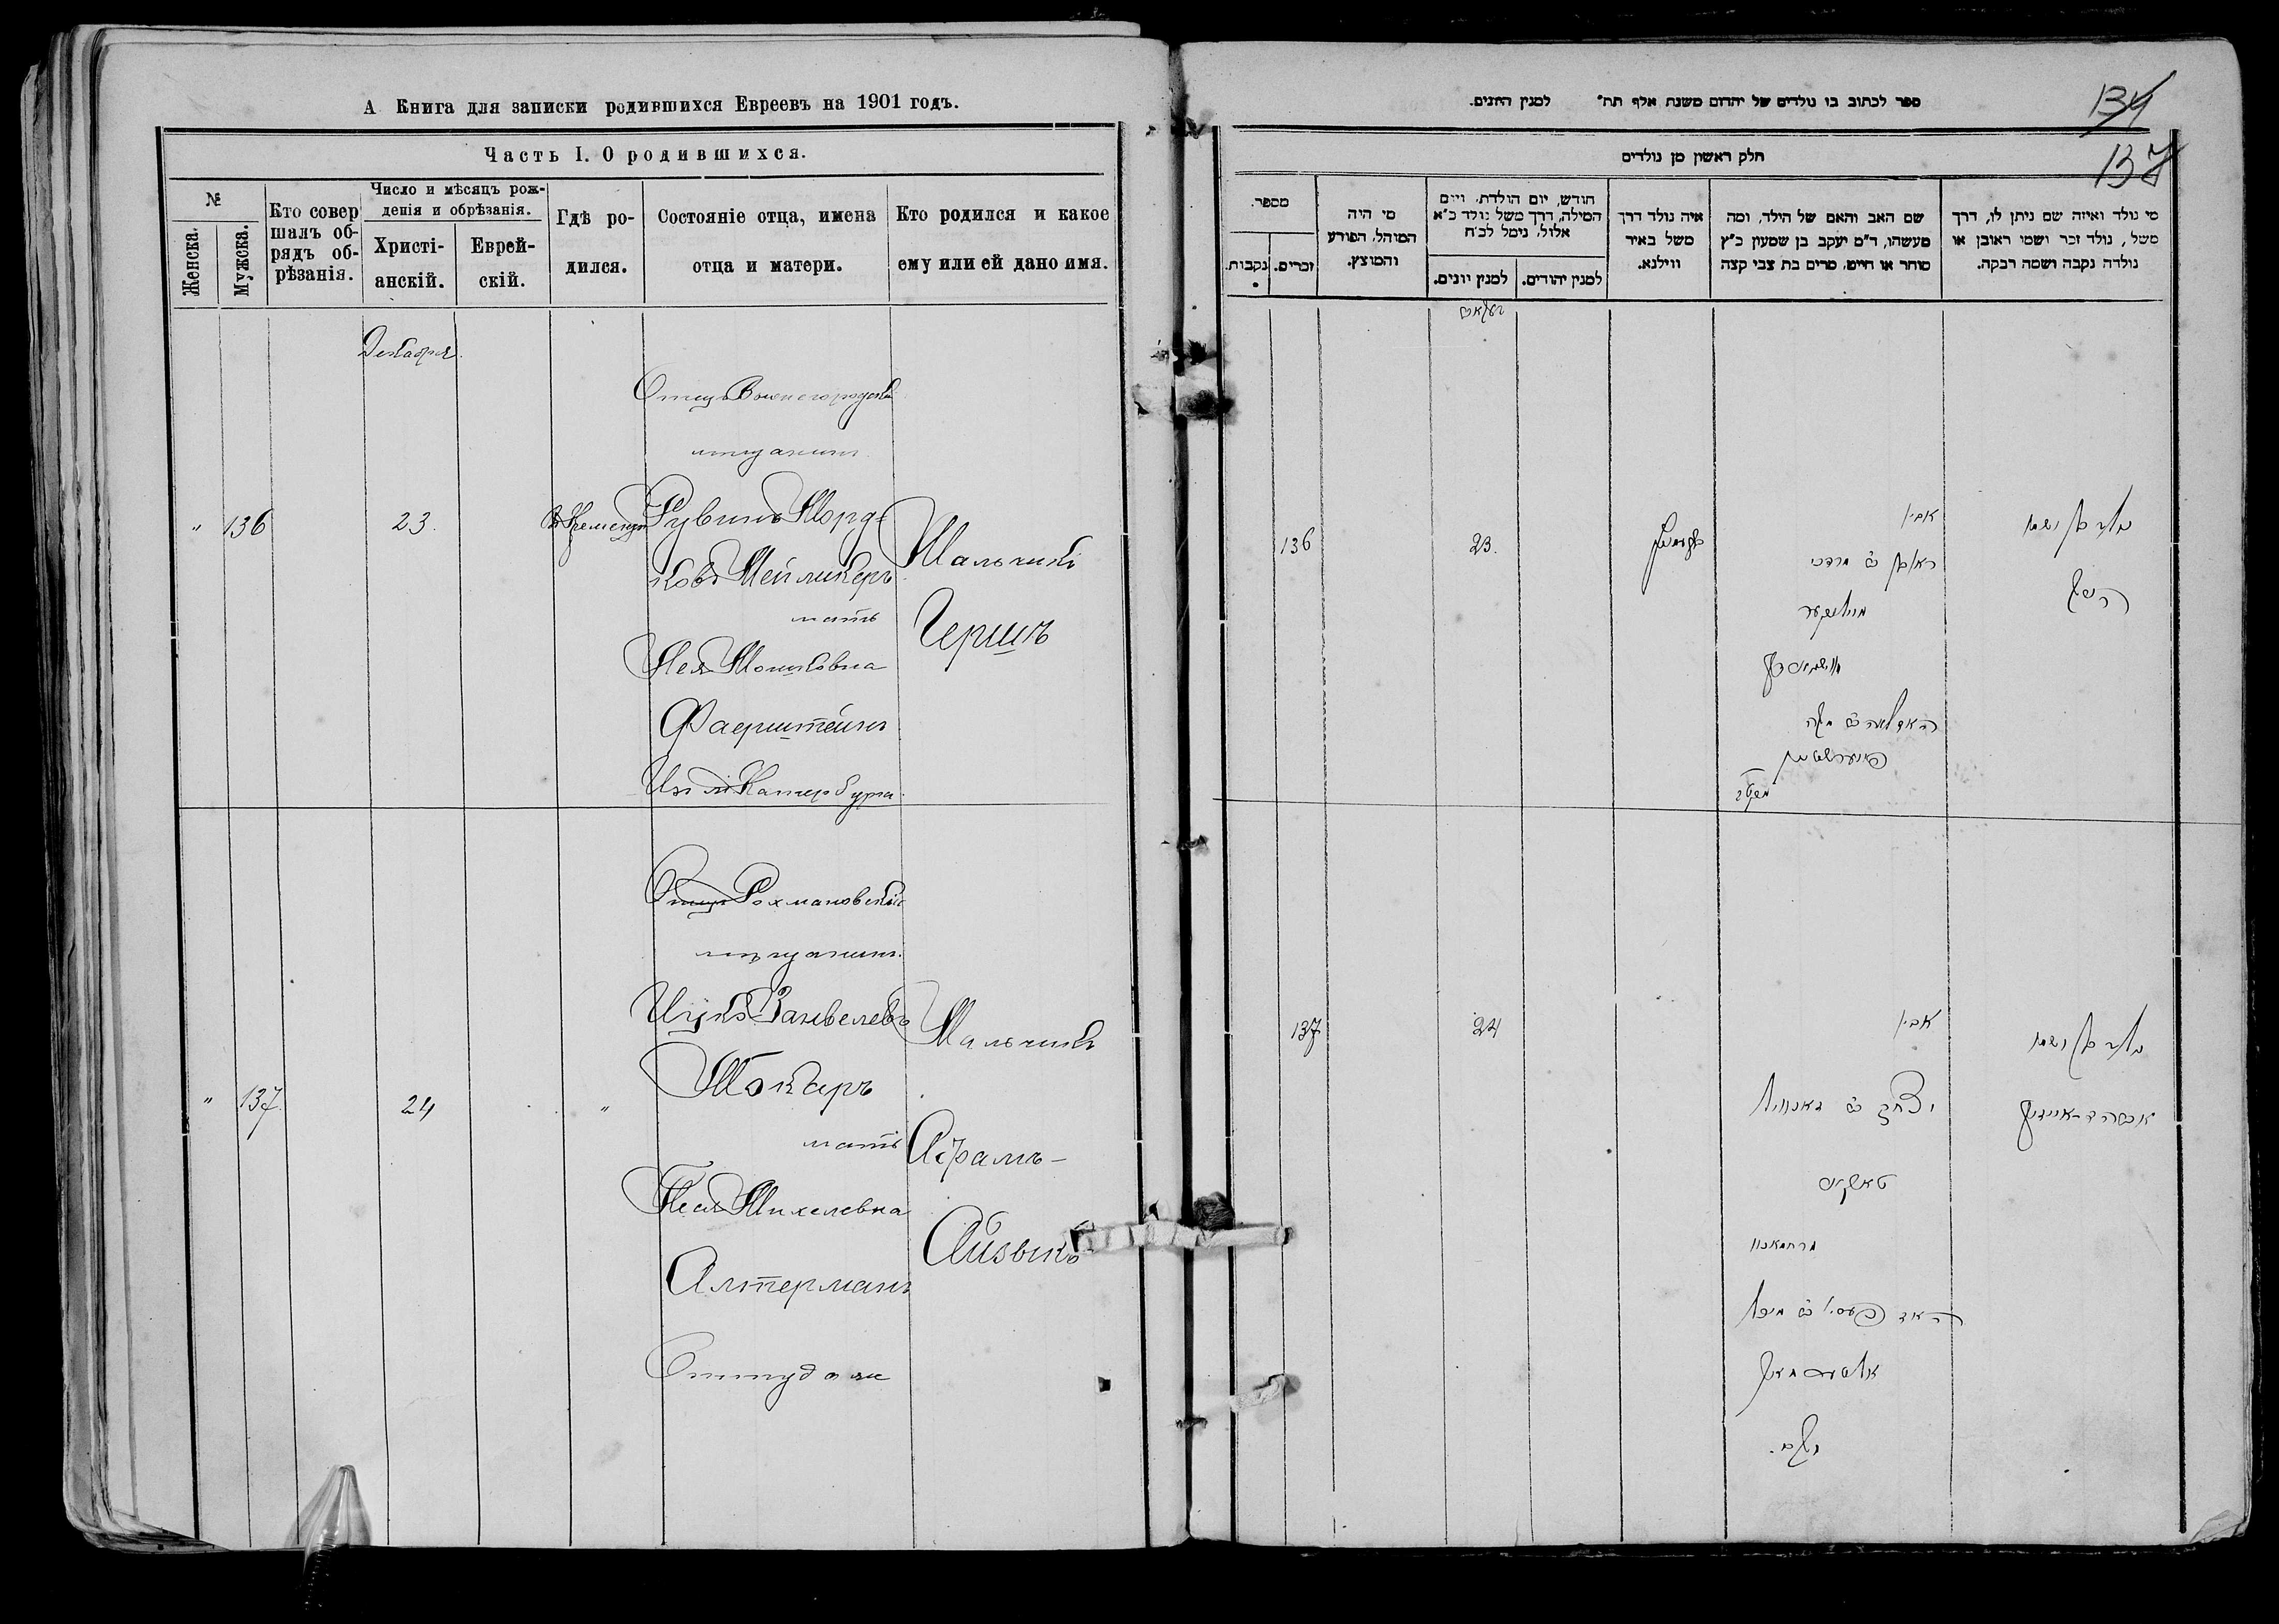 А Книга для записки родившихся Евреевъ на 1901 годъ.
Часть I. О родившихся.
№
Женска.
Мужска.
Кто совер
шалъ об-
рядъ об-
рѣзанія.
Число и мѣсяцъ рож-
денія и обрѣзанія.
Христі-
анскій.
Еврей-
скій.
Гдѣ ро-
дился.
Состояніе отца, имена
отца и матери.
Кто родился и какое
ему или ей дано имя.
Декабря.
Отецъ
мѣщанинъ
" 136 23. Рувинъ Морд=
ковъ Мейликеръ
мать
Мошковна
Фаерштейнъ
Мальчикъ
Гершъ
Отецъ Рохмановскій
мѣщанинъ.
Ицко Занвелевъ
Токаръ
" 137. 24 "
мать
Песя Михелевна
Алтерманъ
Оттуда же
Мальчикъ
Абрамъ-
Айзыкъ
134
137
ספר לכתוב בו נולדים של יהדום משנת אלף תת״ למנין היונים.
חלק ראשון מן נולדים
מספר.
נקבות.
זכרים.
מי היה
המוהל, הפורע
והמוצץ.
חודש, יום הולדת, ויום
המילה, דרך משל נולד כ״א
אלול, נימל לכ״ח
למנין יונים.
למנין יהודים.
איה נולד דרך
משל באיר
ווילנא.
שם האב והאם של הילד, ומה
מעשהו, ד״מ יעקב בן שמעון כ״ץ
סוחר או חייט, מרים בת צבי קצה
מי נולד ואיזה שם ניתן לו, דרך
משל, נולד זכר ושמו ראובן או
נולדה נקבה ושמה רבקה.
136
23.
אביו
ראובן ב׳ מרדכי
מיילקער
פייערשטיין
נולד בן ושמו
הירש
137
24
אביו
יצחק ב׳ זאנוויל
האם פעסי ב׳ מיכל
אלטערמאן
נולד בן ושמו
אברהם-אייזיק